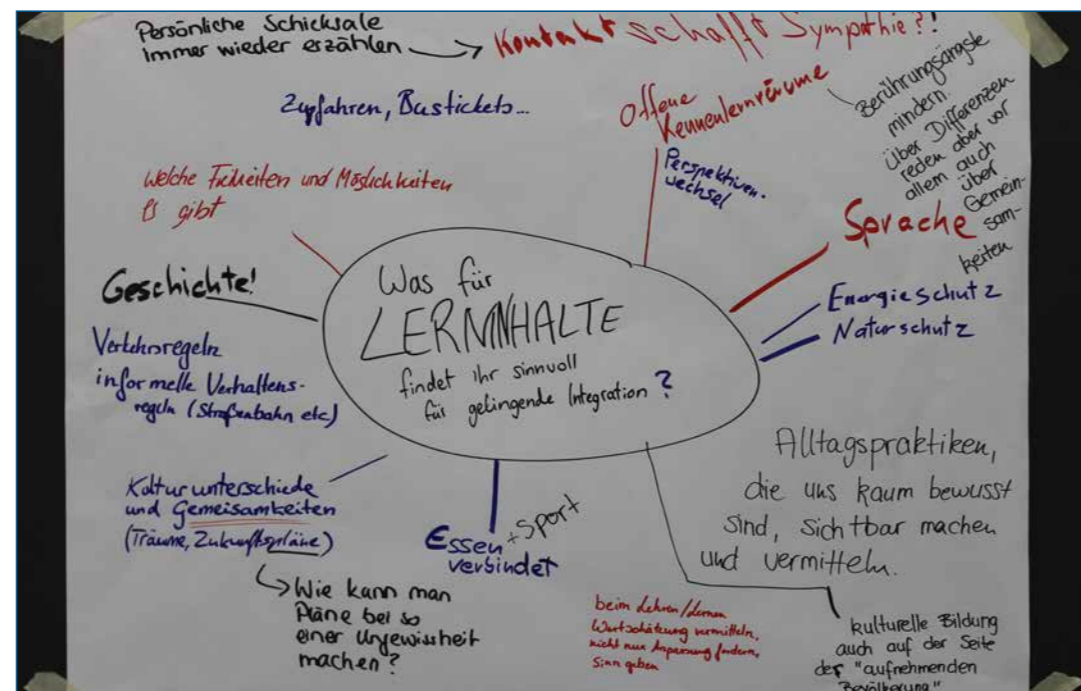 Persönliche Schicksale
immer wieder erzählen
Kontakt schafft Sympathie?!
Zugfahren, Bustickets...
Offene
Kennenlernräume
Berührungsängste
mindern.
über Differenzen
reden aber vor
allem auch
über
Gemein-
sam-
keiten
Perspektiven-
wechsel
Welche Freiheiten und Möglichkeiten
es gibt
Sprache
Geschichte!
Was für
LERNINHALTE
findet ihr sinnvoll
für gelingende Integration?
Energieschutz
Naturschutz
Verkehrsregeln
informelle Verhaltens-
regeln (Straßenbahn etc)
Kulturunterschiede
und Gemeisamkeiten
(Träume, Zukunftspläne)
Wie kann man
Pläne bei so
einer Ungewissheit
machen?
Essen + Sport
verbindet
Alltagspraktiken,
die uns kaum bewusst
sind, sichtbar machen
und vermitteln.
beim Lehren/Lernen
Wertschätzung vermitteln,
nicht nur Anpassung fordern,
Sinn geben
kulturelle Bildung
auch auf der Seite
der "aufnehmenden
Bevölkerung"